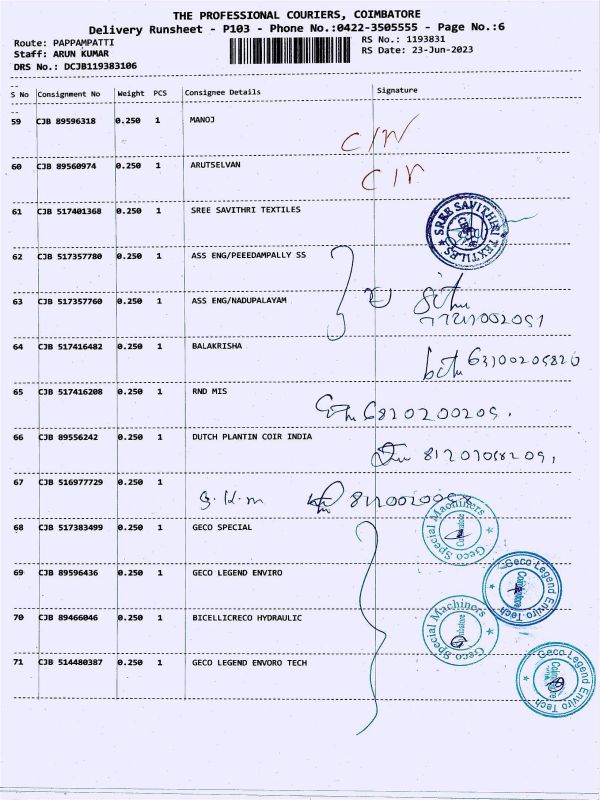 THE PROFESSIONAL COURIERS, COIMBATORE
Delivery Runsheet - P103 - Phone No.:0422-3505555 - Page No.:6
Route: PAPPAMPATTI RS No.: 1193831
Staff: ARUN KUMAR RS Date: 23-Jun-2023
DRS No.: DCJB119383106
S No Consignment No Weight PCS Consignee Details Signature
59 CJB 89596318 0.250 1 MANOJ
60 CJB 89560974 0.250 1 ARUTSELVAN
61 CJB 517401368 0.250 1 SREE SAVITHRI TEXTILES
SREE SAVITHRI TEXTILES
62 CJB 517357780 0.250 1 ASS ENG/PEEEDAMPALLY SS
63 CJB 517357760 0.250 1 ASS ENG/NADUPALAYAM
64 CJB 517416482 0.250 1 BALAKRISHA
65 CJB 517416208 0.250 1 RND MIS
66 CJB 89556242 0.250 1 DUTCH PLANTIN COIR INDIA
67 CJB 516977729 0.250 1
68 CJB 517383499 0.250 1 GECO SPECIAL
Geco Special Machiners Coimbatore
69 CJB 89596436 0.250 1 GECO LEGEND ENVIRO
Geco Legend Enviro Tech Coimbatore
70 CJB 89466046 0.250 1 BICELLICRECO HYDRAULIC
Geco Special Machiners Coimbatore
71 CJB 514480387 0.250 1 GECO LEGEND ENVORO TECH
Geco Legend Enviro Tech Coimbatore